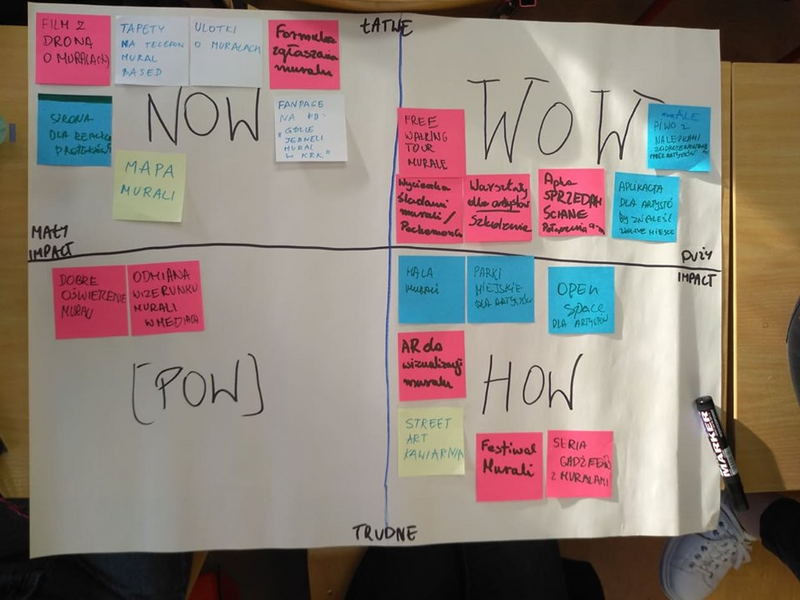 ŁATWE
FILM Z
DRONA
O MURALACH
TAPETY
NA TELEFON
MURAL
BASED
ULOTKI
O MURALACH
Formułka
zgłaszania
muralu
STRONA
DLA
PROJEKTÓW
NOW
FANPAGE
NA FB:
"GDZIE
JEBNĘLI
MURAL
W KRK"
MAPA
MURALI
MAŁY
IMPACT
WOW
FREE
WALKING
TOUR
MURALE
ALE
PIWO Z
NALEPKAMI
Wycieczka
śladami
murali /
Pockemonów
Warsztaty
dla artystów
Szkolenie
Apka
SPRZEDAM
ŚCIANĘ
APLIKACJA
DLA ARTYSTÓW
BY ZNALEŹĆ
MIEJSCE
DUŻY
IMPACT
DOBRE
OŚWIETLENIE
MURALI
ODMIANA
WIZERUNKU
MURALI
W MEDIACH
[POW]
HALA
MURALI
PARKI
MIEJSKIE
DLA ARTYSTÓW
OPEN
Space
DLA ARTYSTÓW
AR do
wizualizacji
muralu
HOW
STREET
ART
KAWIARNIA
Festiwal
Murali
SERIA
GADŻETÓW
Z MURALAMI
TRUDNE
MARKER